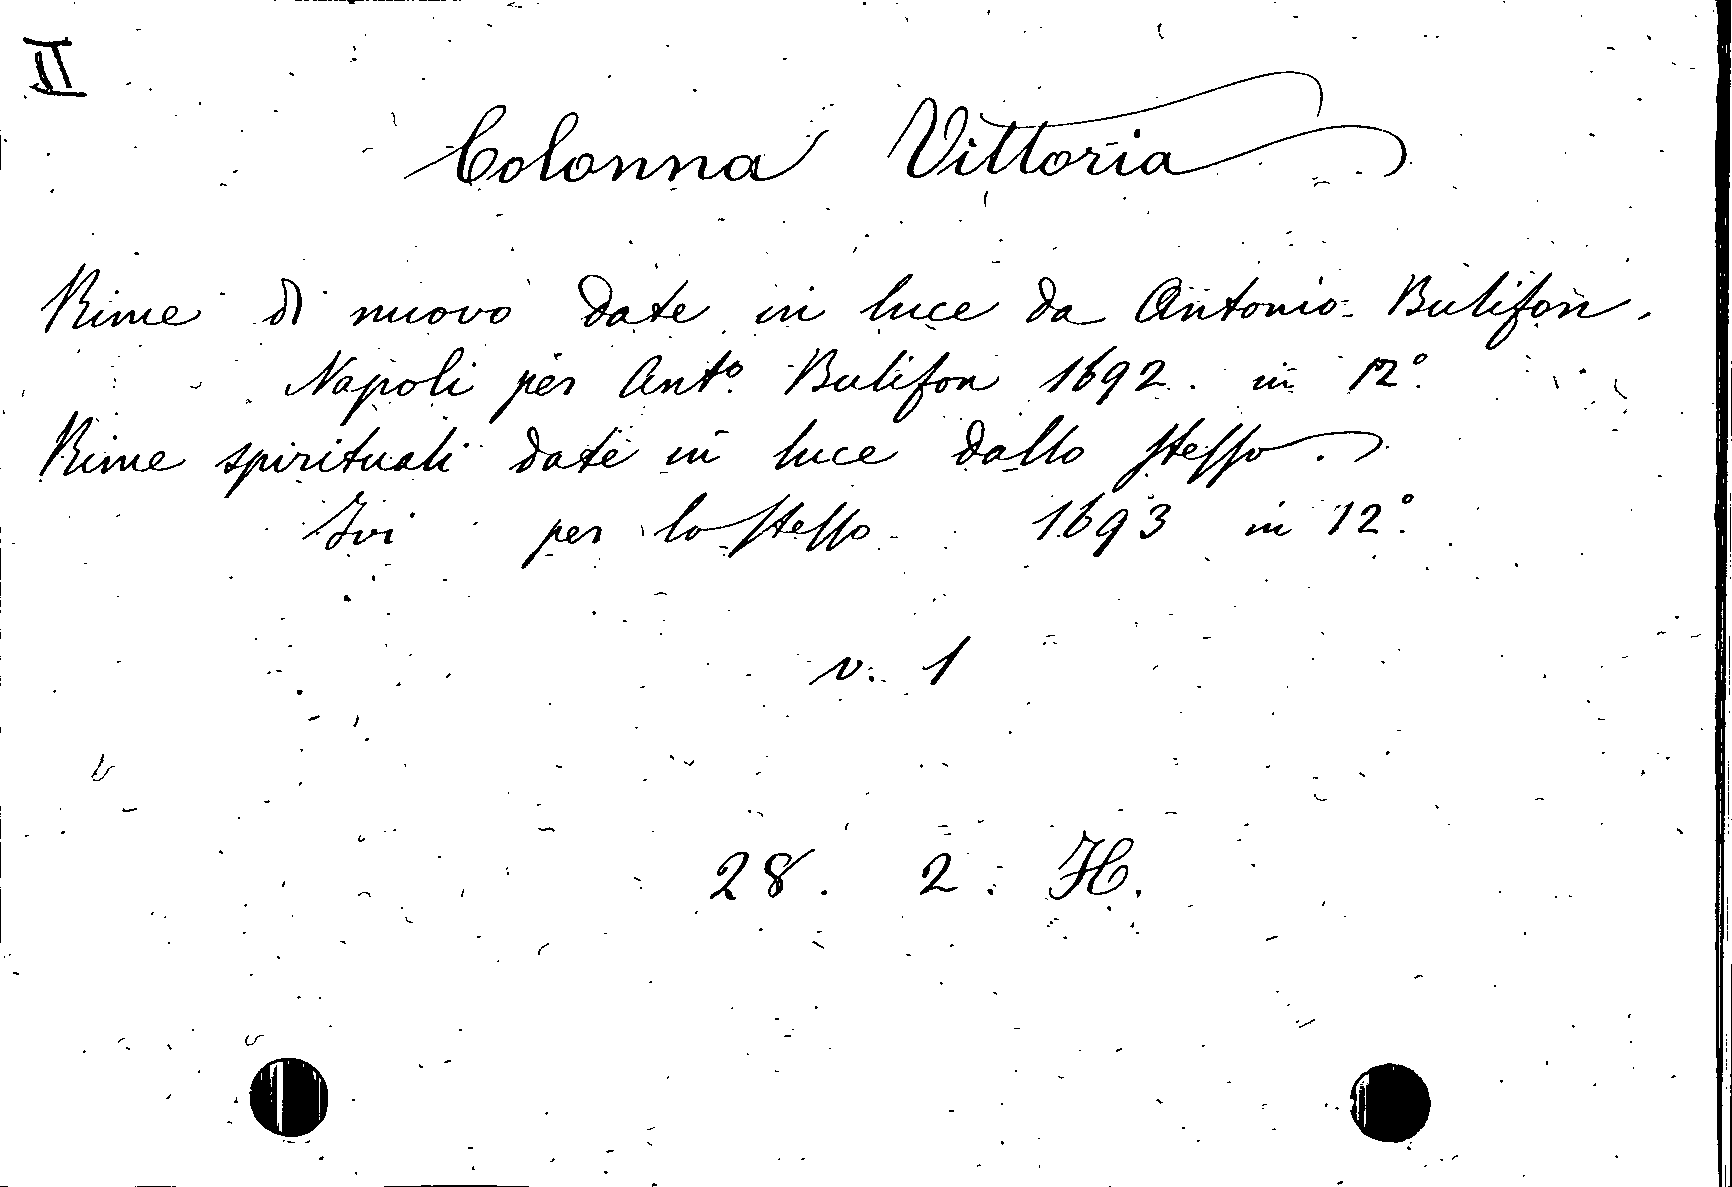 II
Colonna Vittoria
Rime di nuovo date in luce da Antonio Bulifon.
Napoli per Ant.º Bulifon 1692. in 12º.
Rime spirituali date in luce dallo stesso.
Ivi per lo stesso 1693 in 12º.
v. 1
28. 2. H.